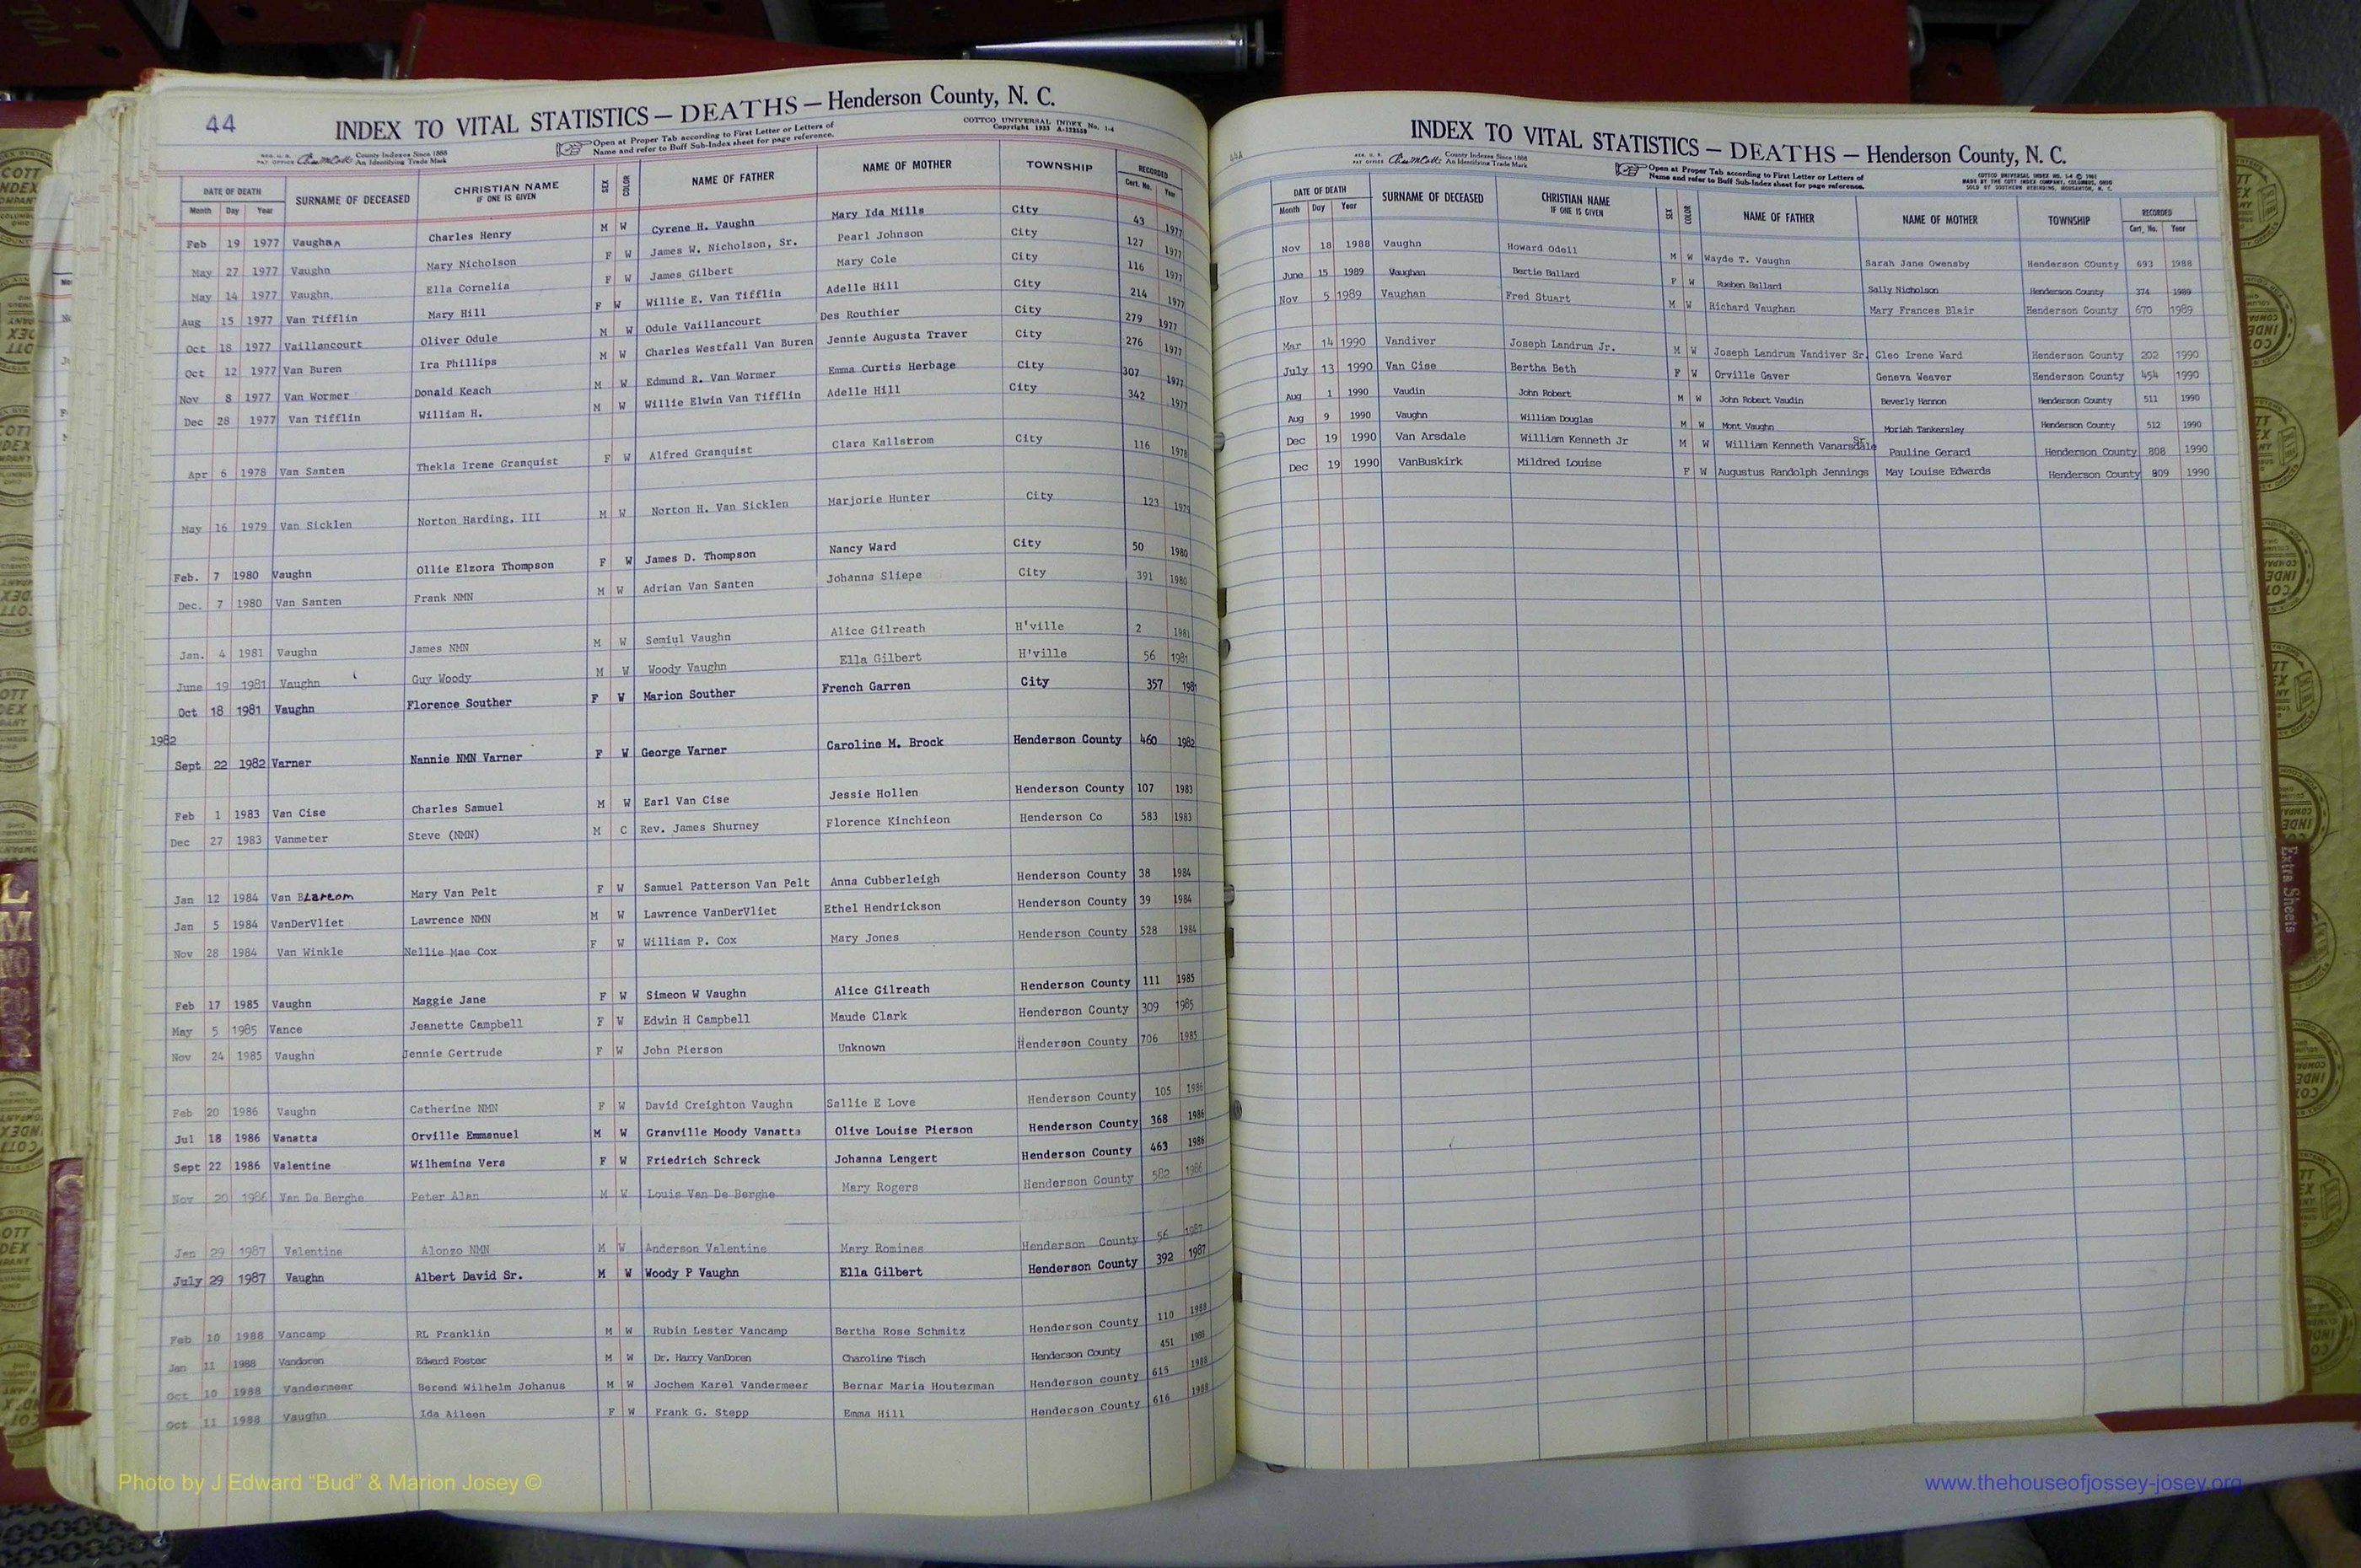 44
INDEX TO VITAL STATISTICS — DEATHS — Henderson County, N. C.
REG. U. S. PAT. OFFICE County Indexes Since 1888 An Identifying Trade Mark
Open at Proper Tab according to First Letter or Letters of
Name and refer to Buff Sub-Index sheet for page reference.
COTTCO UNIVERSAL INDEX No. 1-4
DATE OF DEATH SURNAME OF DECEASED CHRISTIAN NAME IF ONE IS GIVEN SEX COLOR NAME OF FATHER NAME OF MOTHER TOWNSHIP RECORDED
Month Day Year Cert. No. Year
Feb 19 1977 Vaughan Charles Henry M W Cyrene H. Vaughn Mary Ida Mills City 43 1977
May 27 1977 Vaughn Mary Nicholson F W James W. Nicholson, Sr. Pearl Johnson City 127 1977
May 14 1977 Vaughn Ella Cornelia F W James Gilbert Mary Cole City 116 1977
Aug 15 1977 Van Tifflin Mary Hill F W Willie E. Van Tifflin Adelle Hill City 214 1977
Oct 18 1977 Vaillancourt Oliver Odule M W Odule Vaillancourt Des Routhier City 279 1977
Oct 12 1977 Van Buren Ira Phillips M W Charles Westfall Van Buren Jennie Augusta Traver City 276 1977
Nov 8 1977 Van Wormer Donald Keach M W Edmund R. Van Wormer Emma Curtis Herbage City 307 1977
Dec 28 1977 Van Tifflin William H. M W Willie Elwin Van Tifflin Adelle Hill City 342 1977
Apr 6 1978 Van Santen Thekla Irene Granquist F W Alfred Granquist Clara Kallstrom City 116 1978
May 16 1979 Van Sicklen Norton Harding, III M W Norton H. Van Sicklen Marjorie Hunter City 123 1979
Feb. 7 1980 Vaughn Ollie Elzora Thompson F W James D. Thompson Nancy Ward City 50 1980
Dec. 7 1980 Van Santen Frank NMN M W Adrian Van Santen Johanna Sliepe City 391 1980
Jan. 4 1981 Vaughn James NMN M W Semiul Vaughn Alice Gilreath H'ville 2 1981
June 19 1981 Vaughn Guy Woody M W Woody Vaughn Ella Gilbert H'ville 56 1981
Oct 18 1981 Vaughn Florence Souther F W Marion Souther French Garren City 357 1981
1982
Sept 22 1982 Varner Nannie NMN Varner F W George Varner Caroline M. Brock Henderson County 460 1982
Feb 1 1983 Van Cise Charles Samuel M W Earl Van Cise Jessie Hollen Henderson County 107 1983
Dec 27 1983 Vanmeter Steve (NMN) M C Rev. James Shurney Florence Kinchieon Henderson Co 583 1983
Jan 12 1984 Van Blarcom Mary Van Pelt F W Samuel Patterson Van Pelt Anna Cubberleigh Henderson County 38 1984
Jan 5 1984 VanDerVliet Lawrence NMN M W Lawrence VanDerVliet Ethel Hendrickson Henderson County 39 1984
Nov 28 1984 Van Winkle Nellie Mae Cox F W William P. Cox Mary Jones Henderson County 528 1984
Feb 17 1985 Vaughn Maggie Jane F W Simeon W Vaughn Alice Gilreath Henderson County 111 1985
May 5 1985 Vance Jeanette Campbell F W Edwin H Campbell Maude Clark Henderson County 309 1985
Nov 24 1985 Vaughn Jennie Gertrude F W John Pierson Unknown Henderson County 706 1985
Feb 20 1986 Vaughn Catherine NMN F W David Creighton Vaughn Sallie E Love Henderson County 105 1986
Jul 18 1986 Vanatta Orville Emmanuel M W Granville Moody Vanatta Olive Louise Pierson Henderson County 368 1986
Sept 22 1986 Valentine Wilhemina Vera F W Friedrich Schreck Johanna Lengert Henderson County 463 1986
Nov 20 1986 Van De Berghe Peter Alan M W Louis Van De Berghe Mary Rogers Henderson County 582 1986
Jan 29 1987 Valentine Alonzo NMN M W Anderson Valentine Mary Romines Henderson County 56 1987
July 29 1987 Vaughn Albert David Sr. M W Woody P Vaughn Ella Gilbert Henderson County 392 1987
Feb 10 1988 Vancamp RL Franklin M W Rubin Lester Vancamp Bertha Rose Schmitz Henderson County 110 1988
Jan 11 1988 Vandoren Edward Foster M W Dr. Harry VanDoren Charoline Tisch Henderson County 451 1988
Oct 10 1988 Vandermeer Berend Wilhelm Johanus M W Jochem Karel Vandermeer Bernar Maria Houterman Henderson county 615 1988
Oct 11 1988 Vaughn Ida Aileen F W Frank G. Stepp Emma Hill Henderson County 616 1988
44A
INDEX TO VITAL STATISTICS — DEATHS — Henderson County, N. C.
REG. U. S. PAT. OFFICE County Indexes Since 1888 An Identifying Trade Mark
Open at Proper Tab according to First Letter or Letters of
Name and refer to Buff Sub-Index sheet for page reference.
DATE OF DEATH SURNAME OF DECEASED CHRISTIAN NAME IF ONE IS GIVEN SEX COLOR NAME OF FATHER NAME OF MOTHER TOWNSHIP RECORDED
Month Day Year Cert. No. Year
Nov 18 1988 Vaughn Howard Odell M W Wayde T. Vaughn Sarah Jane Owensby Henderson COunty 693 1988
June 15 1989 Vaughan Bertie Ballard F W Rueben Ballard Sally Nicholson Henderson County 374 1989
Nov 5 1989 Vaughan Fred Stuart M W Richard Vaughan Mary Frances Blair Henderson County 670 1989
Mar 14 1990 Vandiver Joseph Landrum Jr. M W Joseph Landrum Vandiver Sr. Cleo Irene Ward Henderson County 202 1990
July 13 1990 Van Cise Bertha Beth F W Orville Gaver Geneva Weaver Henderson County 454 1990
Aug 1 1990 Vaudin John Robert M W John Robert Vaudin Beverly Hannon Henderson County 511 1990
Aug 9 1990 Vaughn William Douglas M W Mont Vaughn Moriah Tankersley Henderson County 512 1990
Dec 19 1990 Van Arsdale William Kenneth Jr M W William Kenneth Vanarsdale Sr. Pauline Gerard Henderson County 808 1990
Dec 19 1990 VanBuskirk Mildred Louise F W Augustus Randolph Jennings May Louise Edwards Henderson County 809 1990
Extra Sheets
Photo by J Edward “Bud” & Marion Josey ©
www.thehouseofjossey-josey.org